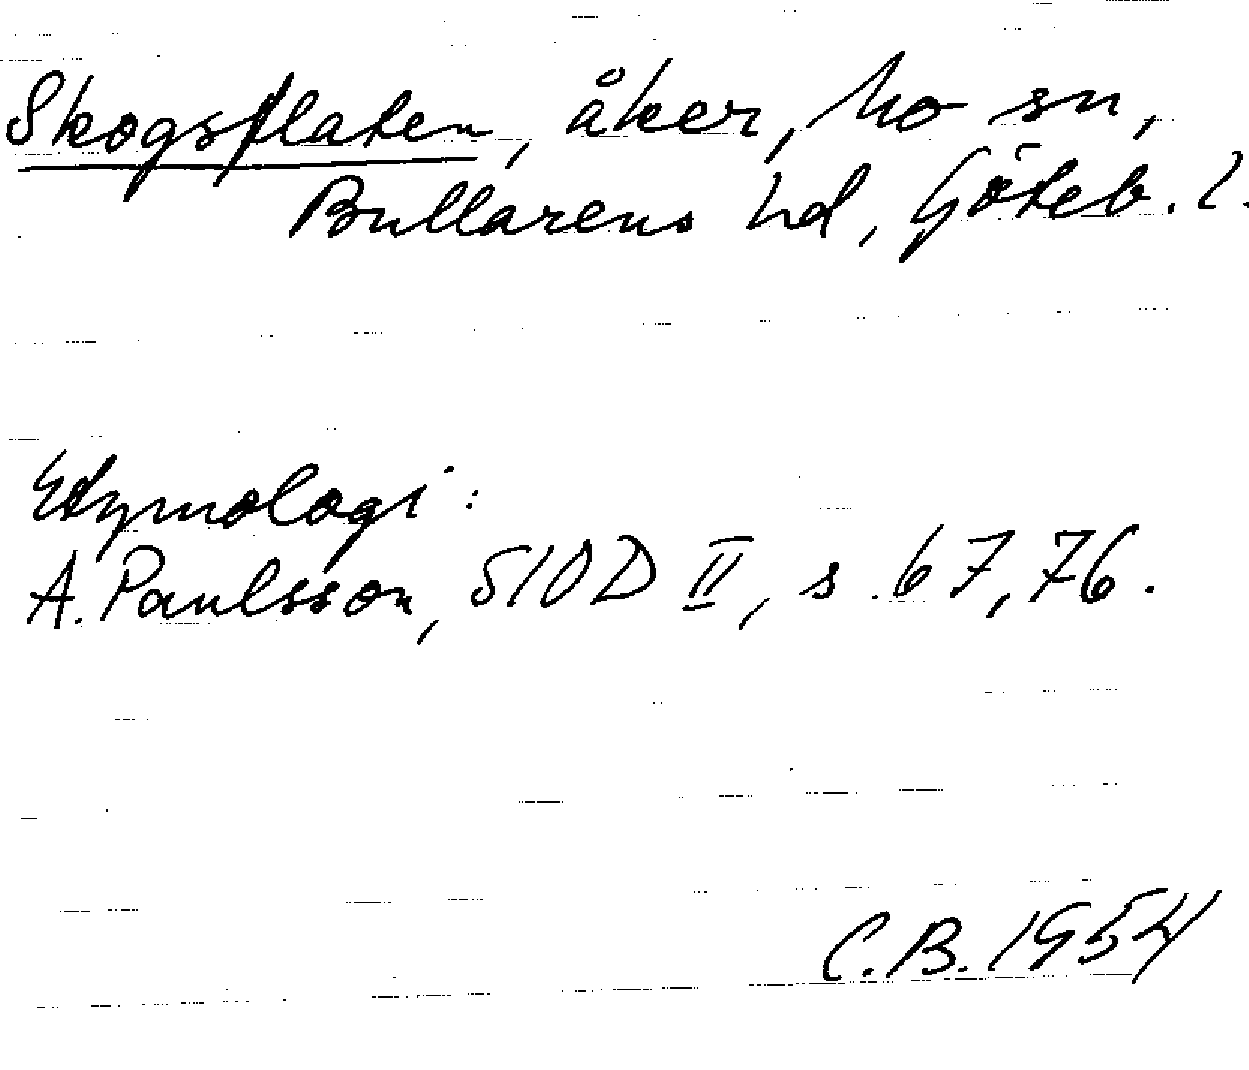 Skogsflaten, åker, Mo sn,
Bullarens hd, Göteb. l.
Etymologi:
A. Paulsson, SIOD II, s. 67, 76.
C.B. 1954